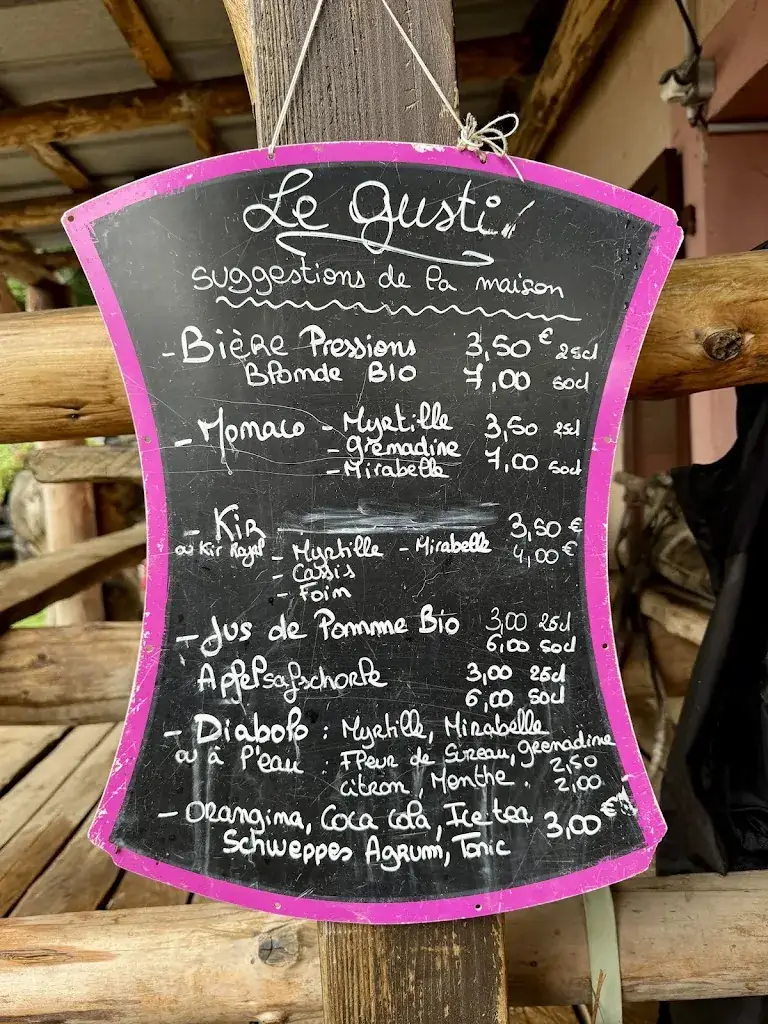 Le Gusti
suggestions de la maison
- Bière Pressions 3,50 € 25cl
Blonde BIO 7,00 50cl
- Monaco - Myrtille 3,50 25cl
- Grenadine 7,00 50cl
- Mirabelle
- Kir 3,50 €
ou Kir Royal - Myrtille - Mirabelle 4,00 €
- Cassis
- Foin
- Jus de Pomme Bio 3,00 25cl
6,00 50cl
Apfelsafschorle 3,00 25cl
6,00 50cl
- Diabolo : Myrtille, Mirabelle
ou à l'eau : Fleur de Sureau, grenadine 2,50
citron, Menthe. 2,00
- Orangina, Coca Cola, Ice tea 3,00 €
Schweppes Agrum, Tonic